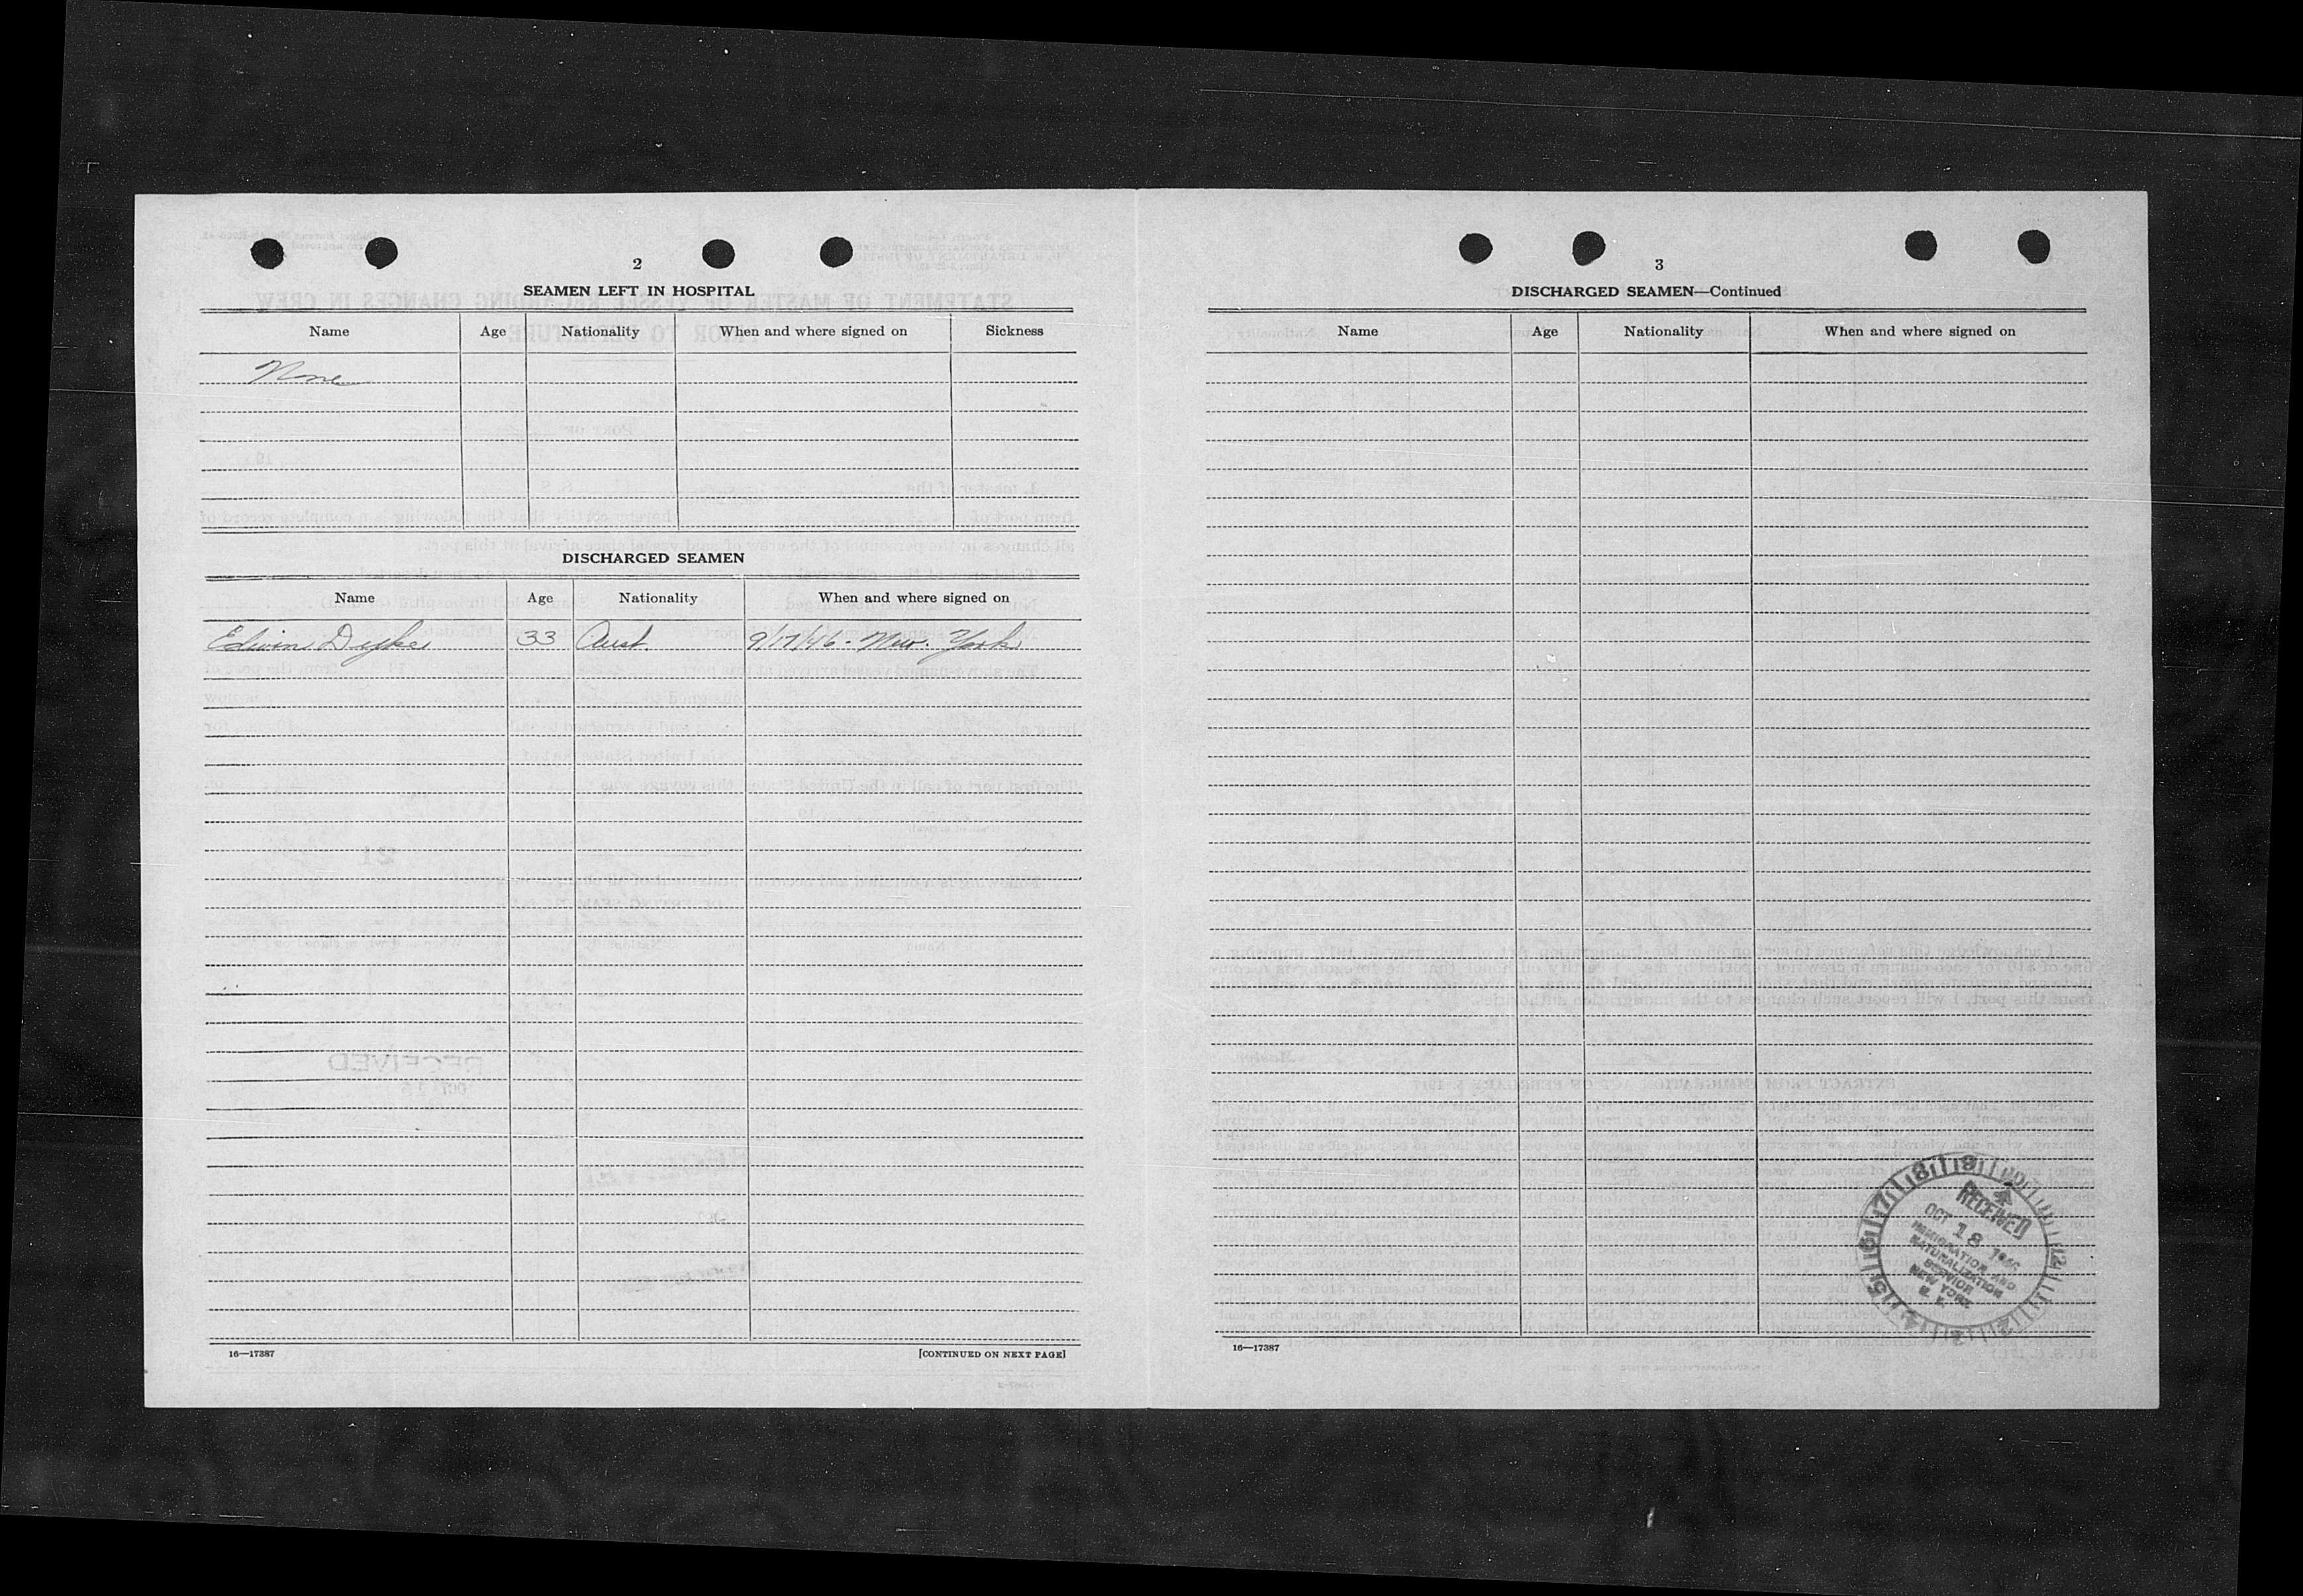 2
SEAMEN LEFT IN HOSPITAL
Name Age Nationality When and where signed on Sickness
None
DISCHARGED SEAMEN
Name Age Nationality When and where signed on
Edwin Dyke 33 Aust. 9/17/46 - New York
16—17387 [CONTINUED ON NEXT PAGE]
3
DISCHARGED SEAMEN—Continued
Name Age Nationality When and where signed on
RECEIVED
OCT 18 1946
IMMIGRATION AND
NATURALIZATION
SERVICE
NEW YORK
N. Y.
16—17387